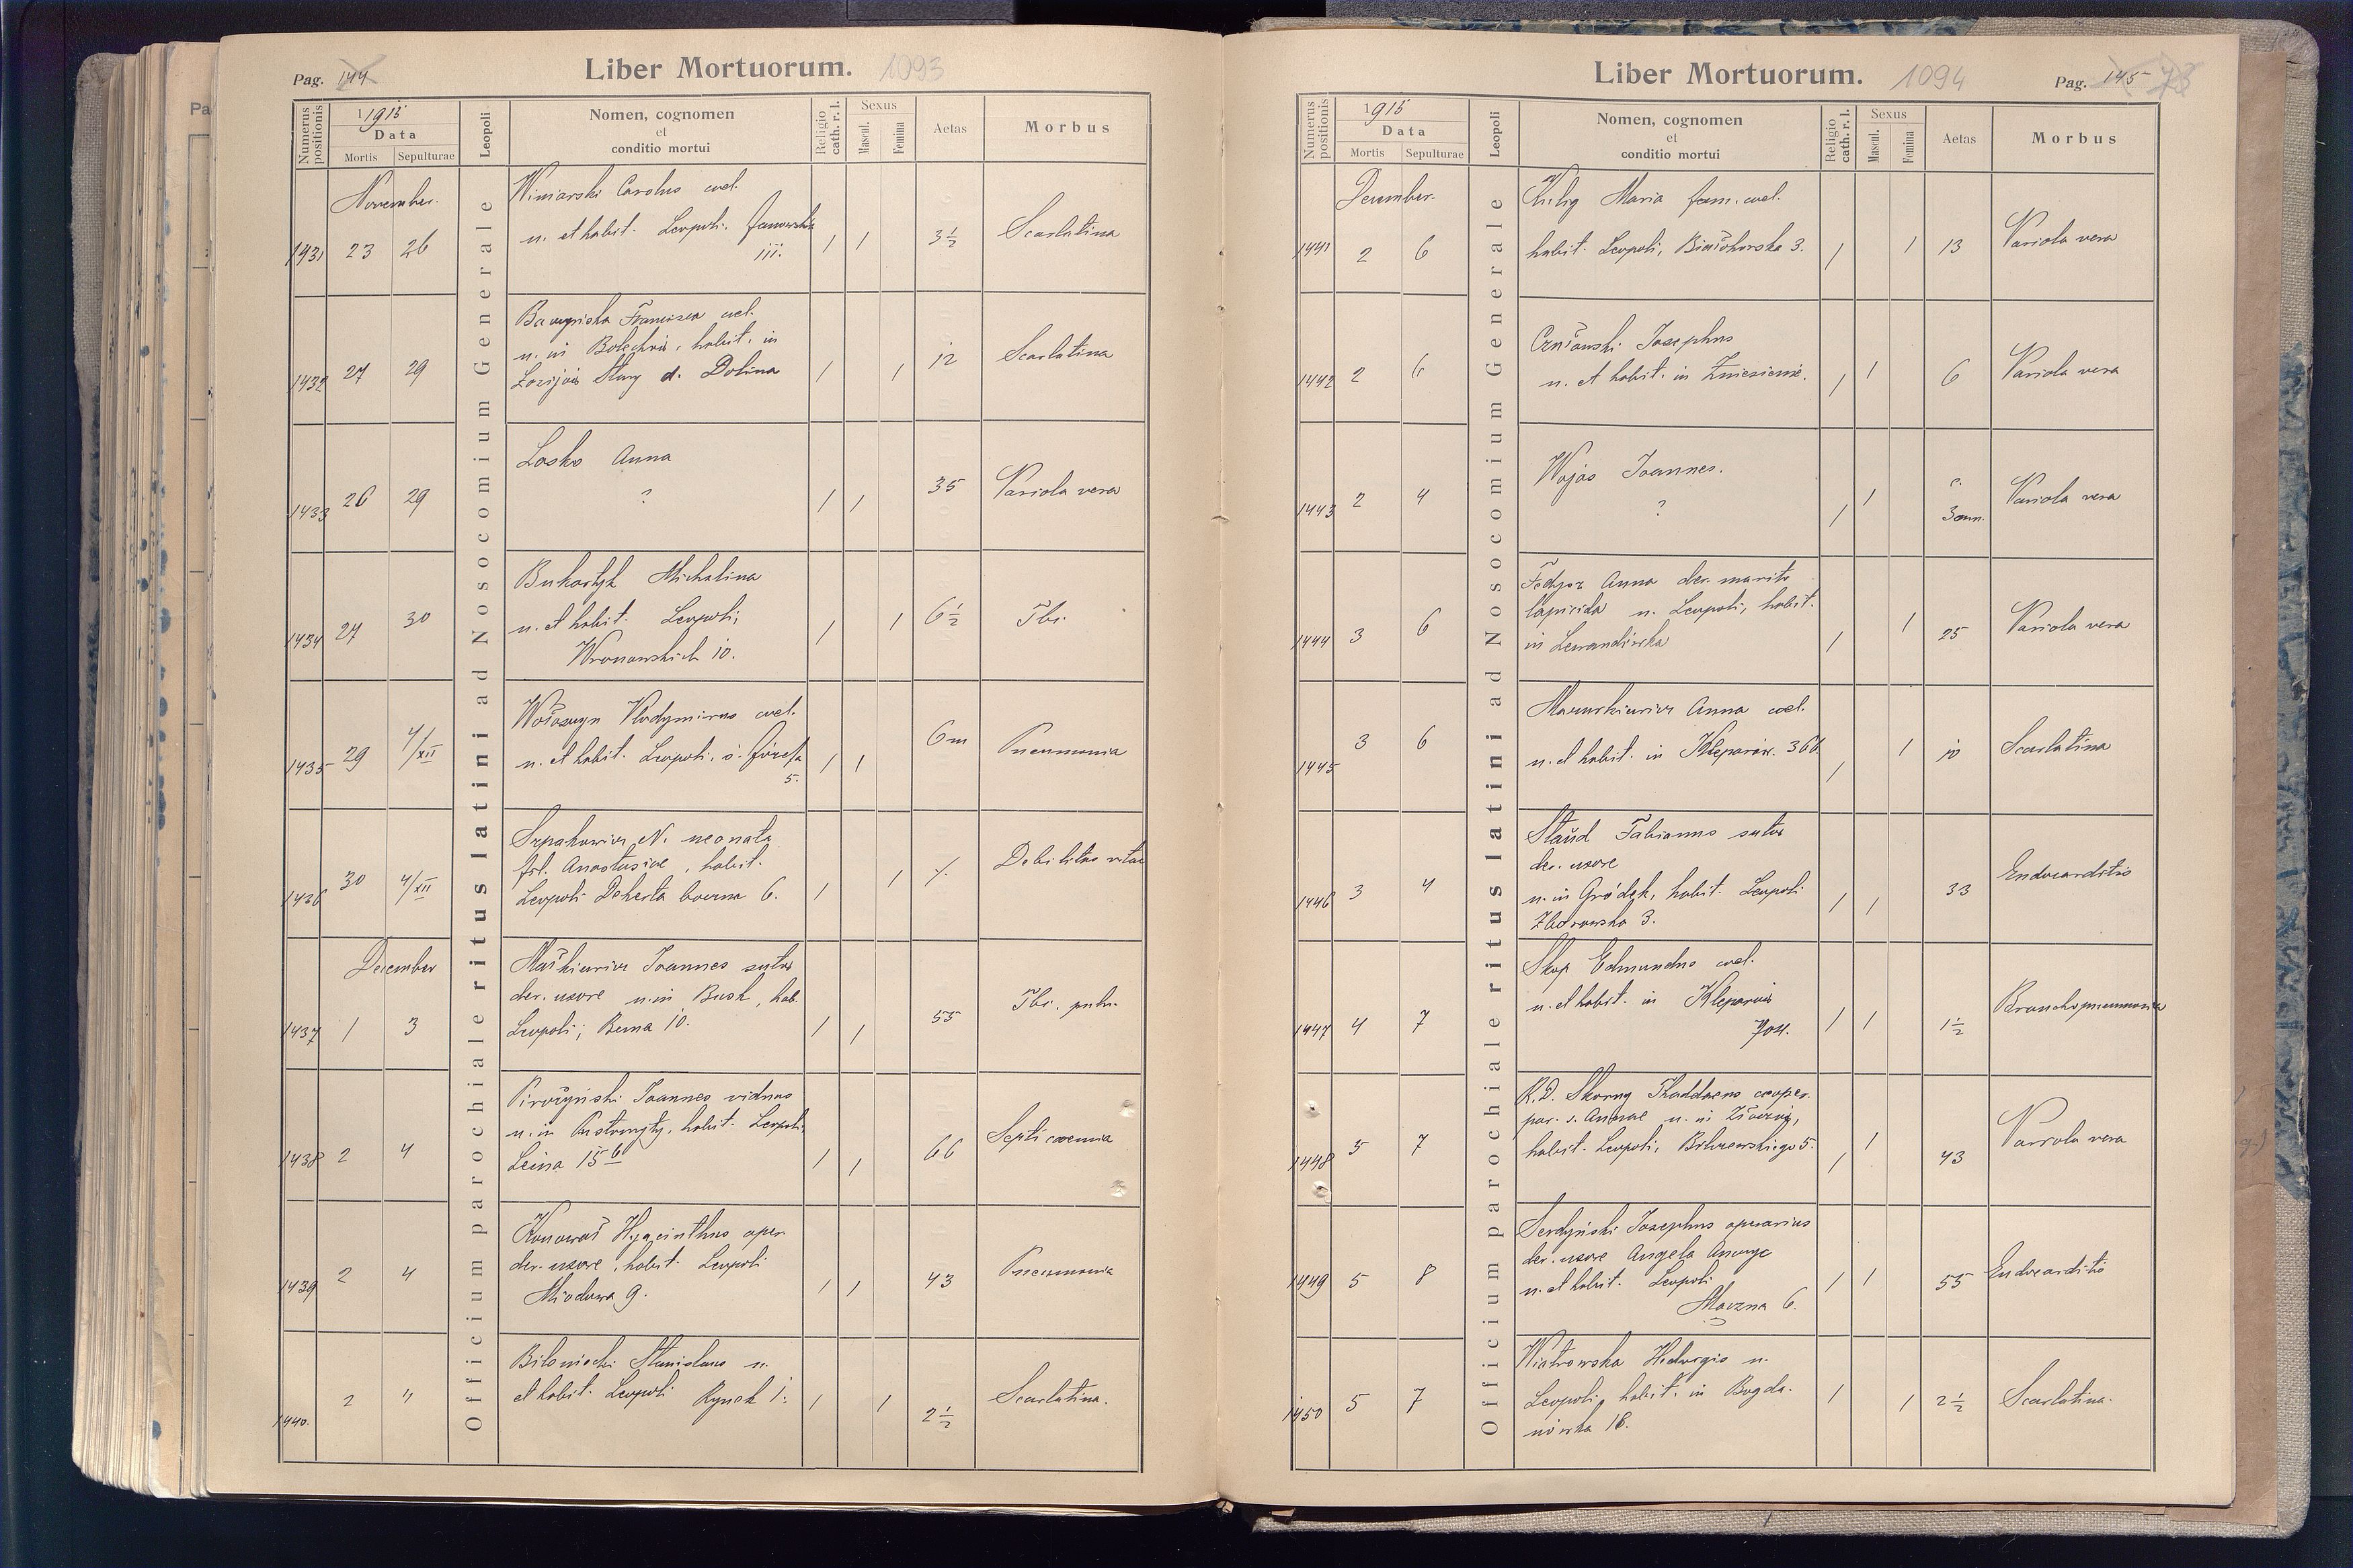 Pag. 144
Liber Mortuorum. 1093
Numerus positionis
1915
Data
Mortis Sepulturae
Leopoli
Nomen, cognomen
et
conditio mortui
Religio
cath. r. l.
Sexus
Mascul. Femina
Aetas
Morbus
Officium parochiale ritus latini ad Nosocomium Generale
November.
1431 23 26
Winiarski Carolus cael.
n. et habit. Leopoli. Janowska
111.
1 1 3½ Scarlatina
1432 27 29
Francisca cael.
n. in habit. in
Stary d. Dolina
1 1 12 Scarlatina
1433 26 29
Losko Anna
?
1 1 35 Variola vera
1434 27 30
Michalina
n. et habit. Leopoli,
Wronowskich 10.
1 1 6½ Tbc.
1435 29 4/XII
Wołoszyn Vladymirus cael.
n. et habit. Leopoli, s. Józefa
5.
1 1 6 m Pneumonia
1436 30 4/XII
Szpakowicz N. neonata
fil. Anastasiae, habit.
Leopoli Dekerta boczna 6.
1 1 Debilitas vitae
December
1437 1 3
Maćkiewicz Joannes sutor
der. uxore n. in Busk, hab.
Leopoli, Bema 10.
1 1 55 Tbc. pulm.
1438 2 4
Joannes viduus
n. in habit. Leopoli,
15
1 1 66 Septicaemia
1439 2 4
Konował Hyacinthus oper.
der. uxore, habit. Leopoli
Miodowa 9.
1 1 43 Pneumonia
1440. 2 "
Stanislaus n.
et habit. Leopoli Rynek 1.
1 1 2½ Scarlatina.
Liber Mortuorum. 1094
Pag. 145 73
Numerus positionis
1915
Data
Mortis Sepulturae
Leopoli
Nomen, cognomen
et
conditio mortui
Religio
cath. r. l.
Sexus
Mascul. Femina
Aetas
Morbus
Officium parochiale ritus latini ad Nosocomium Generale
December.
1441 2 6
Maria fam. cael.
habit. Leopoli, Białohorska 3.
1 1 13 Variola vera
1442 2 6
Josephus
n. et habit. in Zniesienie.
1 1 6 Variola vera
1443 2 4
Wojas Joannes.
?
1 1 c. 3 ann. Variola vera
1444 3 6
Anna der. marito
lapicida n. Leopoli, habit.
in Lewandówka
1 1 25 Variola vera
1445 3 6
Mazurkiewicz Anna cael.
n. et habit. in Kleparów. 366
1 1 10 Scarlatina
1446 3 4
Staud Fabianus sutor
der. uxore
n. in Gródek, habit. Leopoli
Zborowska 3.
1 1 33 Endocarditis
1447 4 7
Skop Edmundus cael.
n. et habit. in Kleparów
1 1 1½ Bronchopneumonia
1448 5 7
R. D. Skorny Thaddaeus cooper.
par. s. Annae n. in Złoczów,
habit. Leopoli, Bilczewskiego 5.
1 1 43 Variola vera
1449 5 8
Serdyński Josephus operarius
der. uxore Angela
n. et habit. Leopoli
6.
1 1 55 Endocarditis
1450 5 7
Wiatrowska Hedvigis n.
Leopoli, habit. in Bogda-
nówka 18.
1 1 2½ Scarlatina.